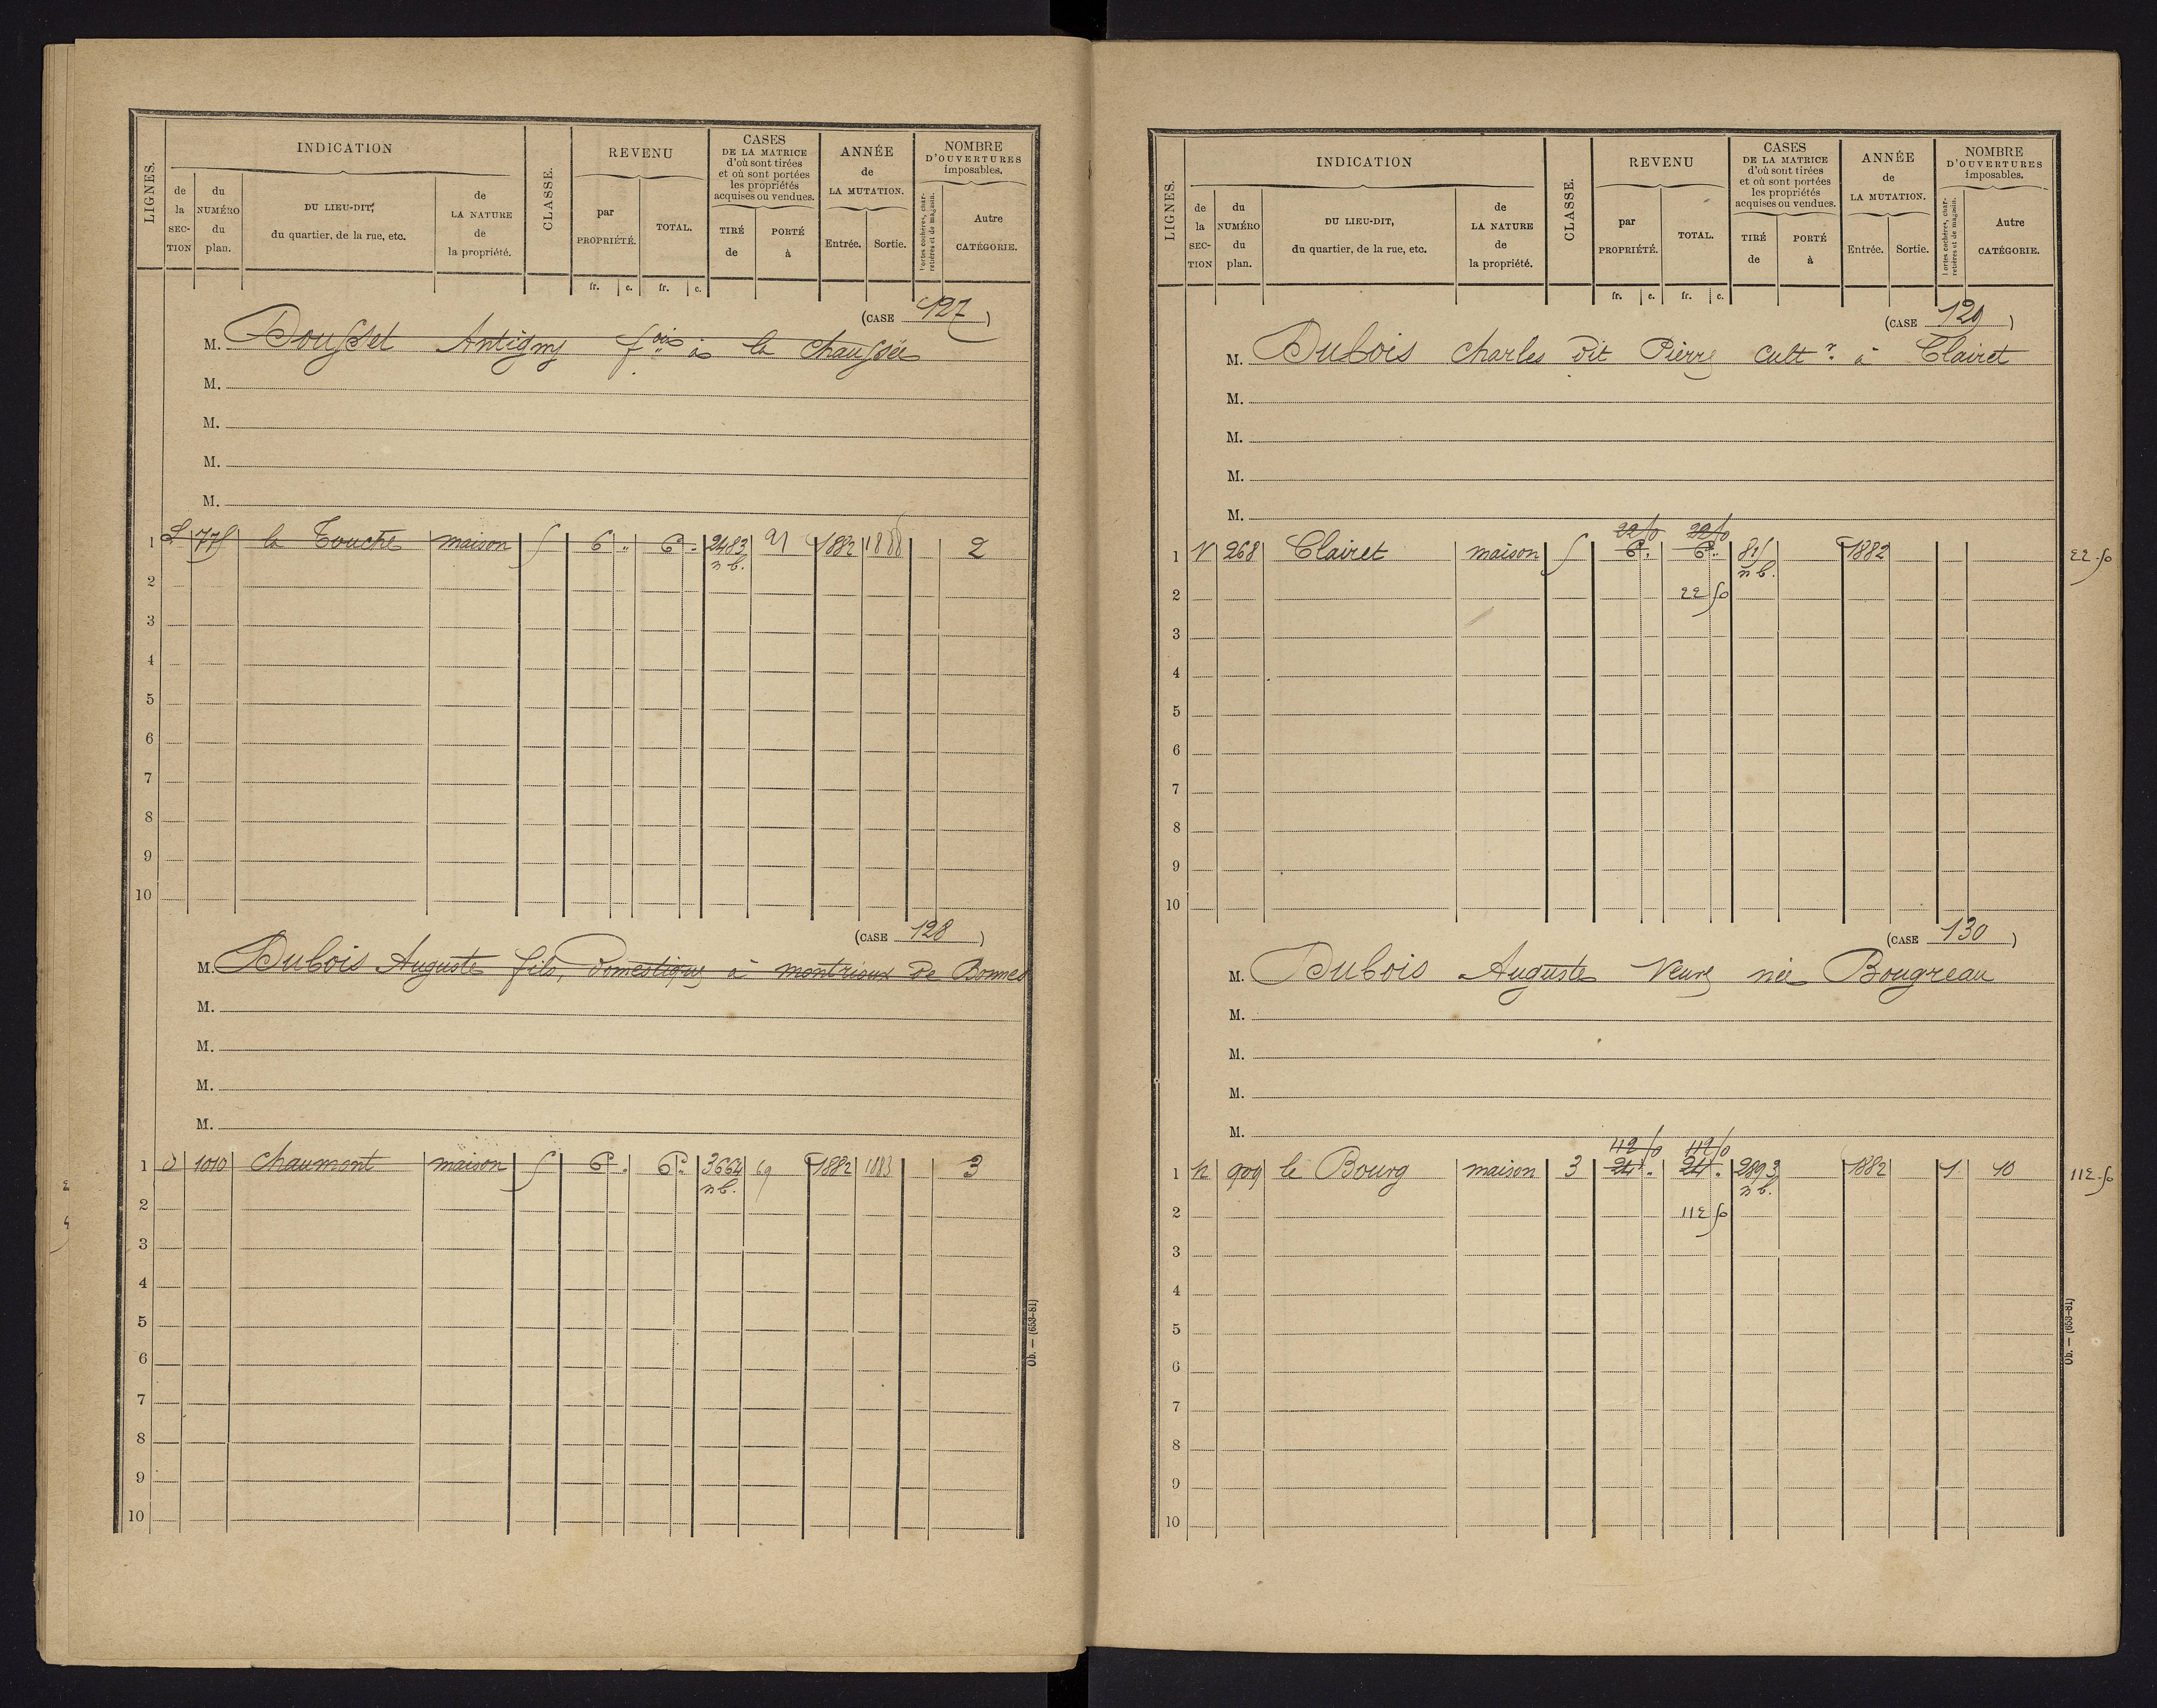 LIGNES.
INDICATION
de la SECTION
du NUMÉRO du plan.
DU LIEU-DIT, du quartier, de la rue, etc.
de LA NATURE de la propriété.
CLASSE.
REVENU
par PROPRIÉTÉ.
TOTAL.
fr. c. fr. c.
CASES DE LA MATRICE d'où sont tirées et où sont portées les propriétés acquises ou vendues.
TIRÉ de
PORTÉ à
ANNÉE de LA MUTATION.
Entrée. Sortie.
NOMBRE D'OUVERTURES imposables.
Portes cochères, charretières et de magasin.
Autre CATÉGORIE.
(CASE 127)
M. Dousset Antigny fois à la chaussée
M.
M.
M.
M.
1 775 la Touche maison 5 6 " 6 " 2483 91 1882 1888 2
n b.
2
3
4
5
6
7
8
9
10
(CASE 128)
M. Dubois Auguste fils, domestique à montrioux de Bonnes
M.
M.
M.
M.
1 1010 chaumont maison 5 6 " 6 " 3664 69 1882 1883 3
n b.
2
3
4
5
6
7
8
9
10
Ob. — (653-81)
LIGNES.
INDICATION
de la SECTION
du NUMÉRO du plan.
DU LIEU-DIT, du quartier, de la rue, etc.
de LA NATURE de la propriété.
CLASSE.
REVENU
par PROPRIÉTÉ.
TOTAL.
fr. c. fr. c.
CASES DE LA MATRICE d'où sont tirées et où sont portées les propriétés acquises ou vendues.
TIRÉ de
PORTÉ à
ANNÉE de LA MUTATION.
Entrée. Sortie.
NOMBRE D'OUVERTURES imposables.
Portes cochères, charretières et de magasin.
Autre CATÉGORIE.
(CASE 129)
M. Dubois charles dit Pierre cultr. à Clairet
M.
M.
M.
M.
22 50 22 50
1 N 268 Clairet maison 5 6 " 6 " 815 1882 22.50
n b.
2 22 50
3
4
5
6
7
8
9
10
(CASE 130)
M. Dubois Auguste Veuve née Bougreau
M.
M.
M.
M.
112 50 112 50
1 909 le Bourg maison 3 24 " 24 " 2893 1882 1 10 112.50
n b.
2 112 50
3
4
5
6
7
8
9
10
Ob. — (653-81)